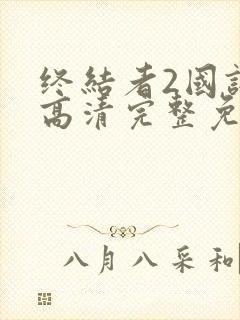 终結者2國
高清完整免
八月八采和